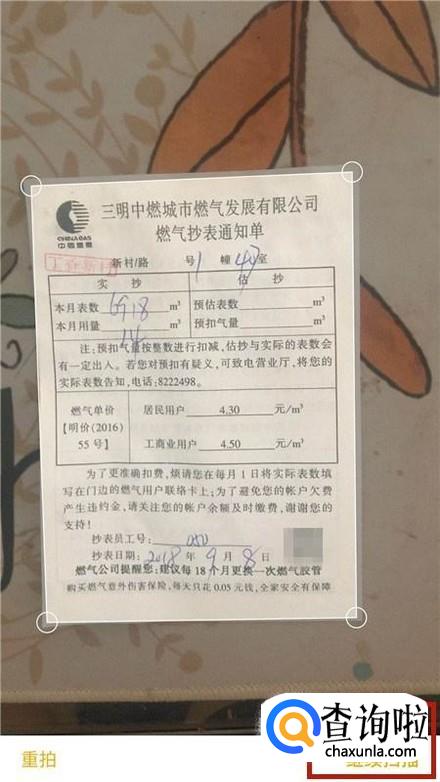 三明中燃城市燃气发展有限公司
CHINA GAS
中国燃气
燃气抄表通知单
新村/路 号1 幢 室
实 抄 估 抄
本月表数 m³ 预估表数 m³
本月用量 m³ 预扣气量 m³
注:预扣气量按整数进行扣减,估抄与实际的表数会
有一定出入。若您对预扣有疑义,可致电营业厅,将您的
实际表数告知,电话:8222498。
燃气单价
【明价(2016)
55号】
居民用户 4.30 元/m³
工商业用户 4.50 元/m³
为了更准确扣费,烦请您在每月1日将实际表数填
写在门边的燃气用户联络卡上;为了避免您的帐户欠费
产生违约金,请关注您的帐户余额及时缴费,谢谢您的
支持!
抄表员工号: 050
抄表日期: 2018 年 9 月 8 日
燃气公司提醒您:建议每18个月更换一次燃气胶管
购买燃气意外伤害保险,每天只花0.05元钱,全家安全有保障
查询啦
chaxunla.com
重拍